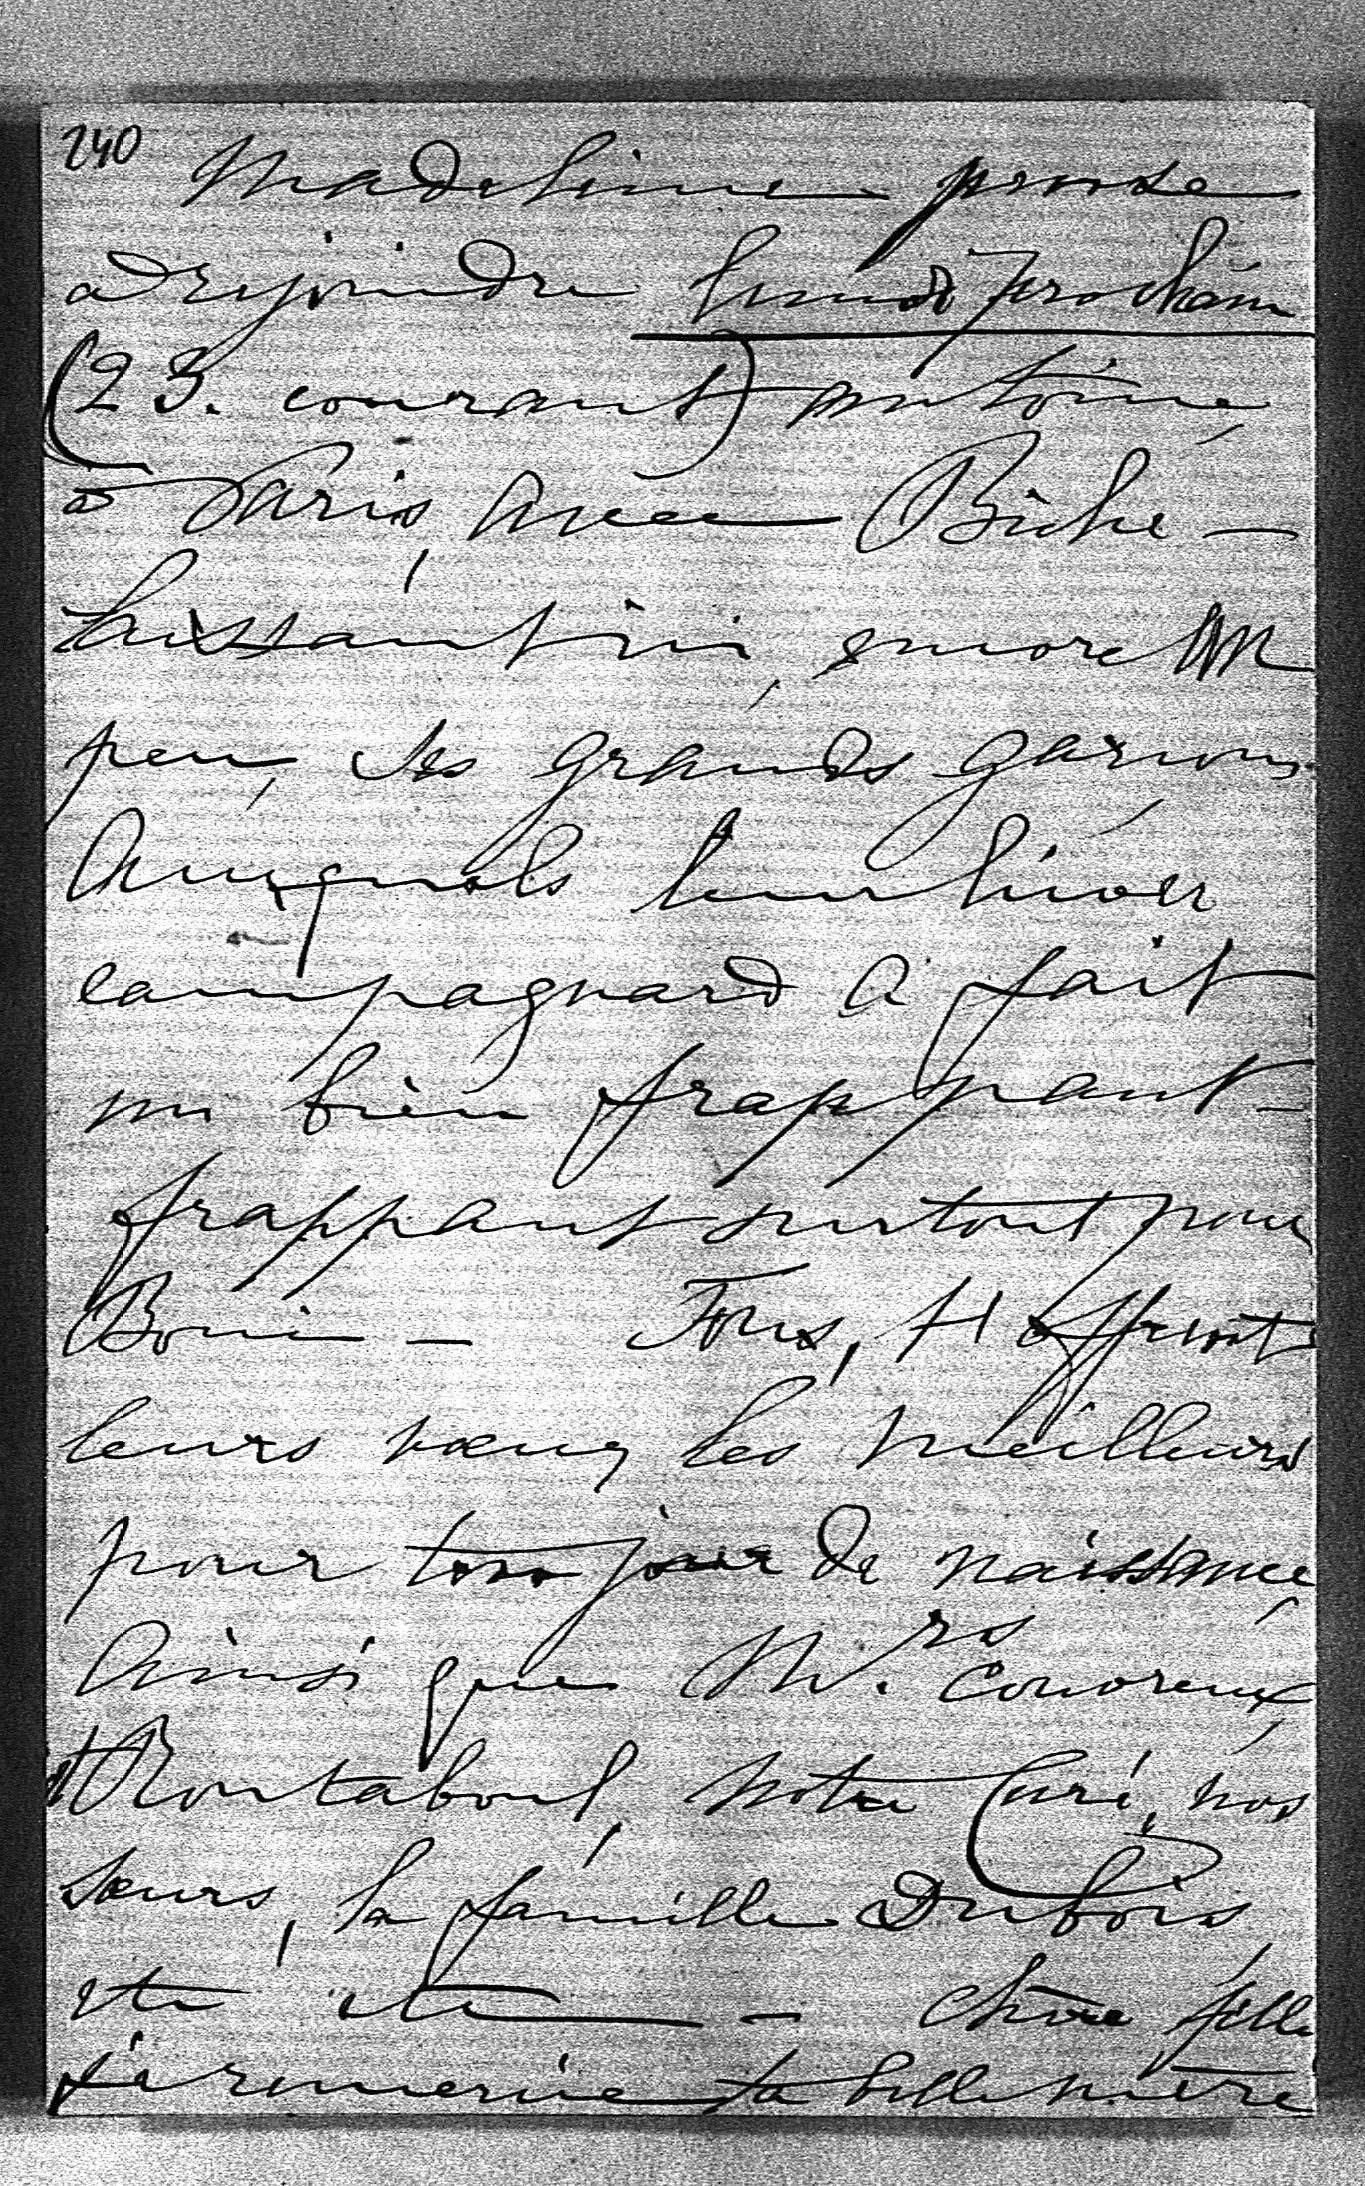 240
Madeleine pense
à rejoindre lundi prochain
(23. courant) Antoine,
à Paris, avec Biche —
laissant ici, encore un
peu, ses grands garçons,
auxquels leur hiver
campagnard a fait
un bien frappant —
frappant surtout pour
Boni — Tous, t'offrent
leurs vœux les meilleurs
pour ton jour de naissance,
ainsi que M.rs Couvreux,
& Routaboul, notre Curé, nos
sœurs, la famille Dubois
etc etc — chère fille
remercie ta belle mère